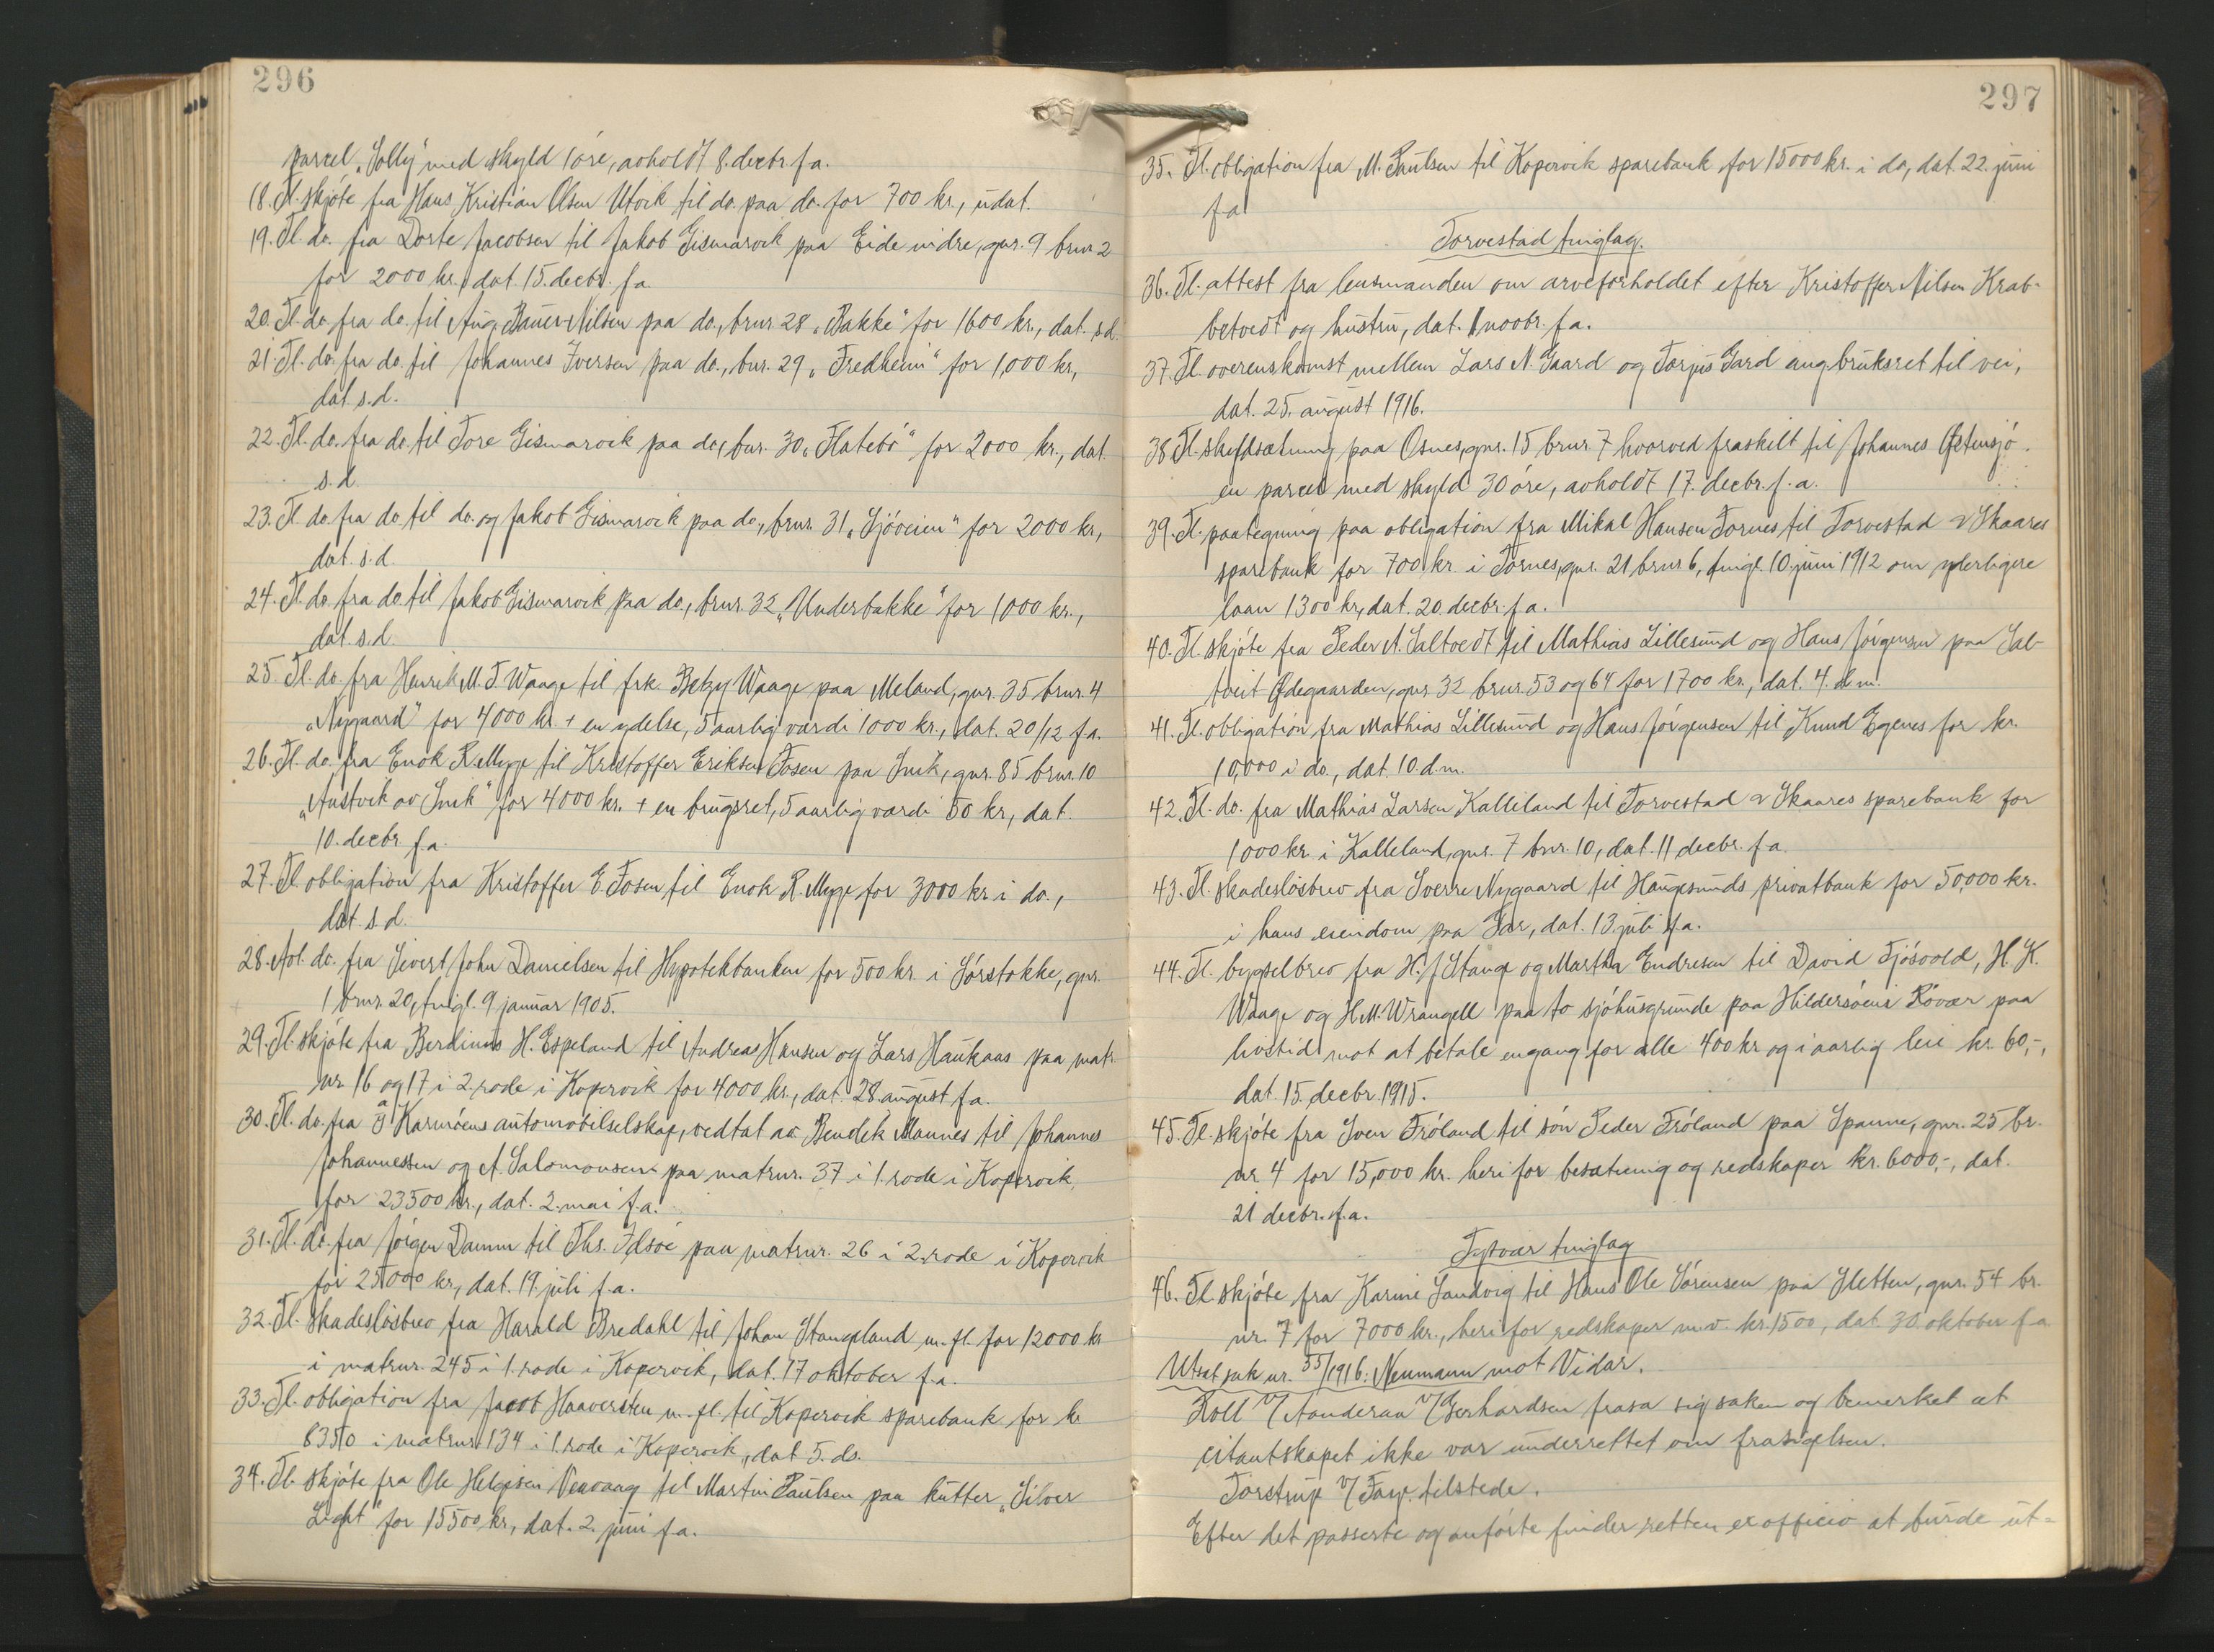 296
parcel „Solly" med skyld 1 øre, avholdt 8. decbr. f.a.
18. Tl. skjøte fra Hans Kristian Olsen Utvik til do. paa do. for 700 kr., udat.
19. Tl. do. fra Dorte Jacobsen til Jakob Gismarvik paa Eide indre, gnr. 9 brnr. 2
for 2000 kr., dat. 15. decbr. f.a.
20. Tl. do. fra do. til Aug. Bauer Nilsen paa do., brnr. 28 „Bakke" for 1600 kr., dat. s.d.
21. Tl. do. fra do. til Johannes Iversen paa do., bnr. 29 „Fredheim" for 1,000 kr.,
dat. s.d.
22. Tl. do. fra do. til Tore Gismarvik paa do., bnr. 30 „Flatebø" for 2000 kr., dat.
s.d.
23. Tl. do. fra do. til do. og Jakob Gismarvik paa do., brnr. 31 „Sjøveien" for 2000 kr.,
dat. s.d.
24. Tl. do. fra do. til Jakob Gismarvik paa do., brnr. 32 „Underbakke" for 1000 kr.,
dat. s.d.
25. Tl. do. fra Henrik M. T. Waage til frk. Betzy Waage paa Meland, gnr. 35 brnr. 4
„Nygaard" for 4000 kr. + en ydelse, 5 aarlig værdi 1000 kr., dat. 20/12 f.a.
26. Tl. do. fra Enok R. Myge til Kristoffer Eriksen Fosen paa Snik, gnr. 85 brnr. 10
„Austvik av Snik" for 4000 kr. + en brugsret, 5 aarlig værdi 50 kr., dat.
10. decbr. f.a.
27. Tl. obligation fra Kristoffer E. Fosen til Enok R. Myge for 3000 kr. i do.,
dat. s.d.
28. Avl. do. fra Sivert John Danielsen til Hypotekbanken for 500 kr. i Sørstokke, gnr.
1 brnr. 20, tingl. 9 januar 1905.
29. Tl. skjøte fra Berdinus H. Espeland til Andreas Hansen og Lars Haukaas paa matr.
nr. 16 og 17 i 2. rode i Kopervik for 4000 kr., dat. 28. august f.a.
30. Tl. do. fra a/s Karmøens automobilselskap, vedtat av Bendik Mannes til Johannes
Johannessen og A. Salomonsen paa matrnr. 37 i 1. rode i Kopervik
for 23500 kr., dat. 2. mai f.a.
31. Tl. do. fra Jørgen Damm til Ths. Idsøe paa matrnr. 26 i 2. rode i Kopervik
for 25000 kr., dat. 19. juli f.a.
32. Tl. skadesløsbrev fra Harald Bredahl til Johan Stangeland m. fl. for 12000 kr
i matrnr. 245 i 1. rode i Kopervik, dat. 17 oktober f.a.
33. Tl. obligation fra Jacob Haaversten m. fl. til Kopervik sparebank for kr
6350 i matrnr. 134 i 1. rode i Kopervik, dat. 5. ds.
34. Tl. skjøte fra Ole Helgesen Veavaag til Martin Paulsen paa kutter „Silver
Light" for 15500 kr., dat. 2. juni f.a.
297
35. Tl. obligation fra M. Paulsen til Kopervik sparebank for 15000 kr. i do, dat. 22. juni
f.a
Torvestad tinglag.
36. Tl. attest fra lensmanden om arveforholdet efter Kristoffer Nilsen Krab-
betvedt og hustru, dat. 1 novbr. f.a.
37. Tl. overenskomst mellem Lars N. Gaard og Torjus Gard ang. bruksret til vei,
dat. 25. august 1916.
38. Tl. skyldsætning paa Osnes, gnr. 15 brnr. 7 hvorved fraskilt til Johannes Østensjø
en parcel med skyld 30 øre, avholdt 17. decbr. f.a.
39. Tl. paategning paa obligation fra Mikal Hansen Tornes til Torvestad & Skaares
sparebank for 700 kr. i Tornes, gnr. 21 brnr. 6, tingl. 10. juni 1912 om yderligere
laan 1300 kr, dat. 20. decbr. f.a.
40. Tl. skjøte fra Peder A. Saltvedt til Mathias Lillesund og Hans Jørgensen paa Sal-
tveit Ødegaarden, gnr. 32 brnr. 53 og 64 for 1700 kr., dat. 4. d.m.
41. Tl. obligation fra Mathias Lillesund og Hans Jørgensen til Knud Egenes for kr.
10,000 i do., dat. 10. d.m.
42. Tl. do. fra Mathias Larsen Kalleland til Torvestad & Skaares sparebank for
1000 kr. i Kalleland, gnr. 7 bnr. 10, dat. 11 decbr. f.a.
43. Tl. skadesløsbrev fra Sverre Nygaard til Haugesunds privatbank for 50,000 kr.
i hans eiendom paa Gar, dat. 13. juli f.a.
44. Tl. bygselbrev fra H. J. Stange og Martha Endresen til David Fjøsvold, H. K.
Waage og H. M. Wrangell paa to sjøhusgrunde paa Hildersøeni Røvær paa
livstid mot at betale engang for alle 400 kr og i aarlig leie kr. 60,-,
dat. 15. decbr. 1915.
45. Tl. skjøte fra Sven Frøland til søn Peder Frøland paa Spanne, gnr. 25 br.
nr. 4 for 15,000 kr. heri for besætning og redskaper kr. 6000,-, dat.
21 decbr. f.a.
Tysvær tinglag
46. Tl. skjøte fra Karine Sandvig til Hans Ole Sørensen paa Sletten, gnr. 54 br.
nr. 7 for 7000 kr., heri for redskaper m.v. kr. 1500, dat. 30. oktober f.a
Utsat sak nr. 55/1916: Neumann mot Vidar.
Roll v/ Aanderaa v/ Gerhardsen frasa sig saken og bemerket at
citantskapet ikke var underrettet om frasigelsen.
Torstrup v/ Fasp. tilstede.
Efter det passerte og anførte finder retten ex officio at burde ut=